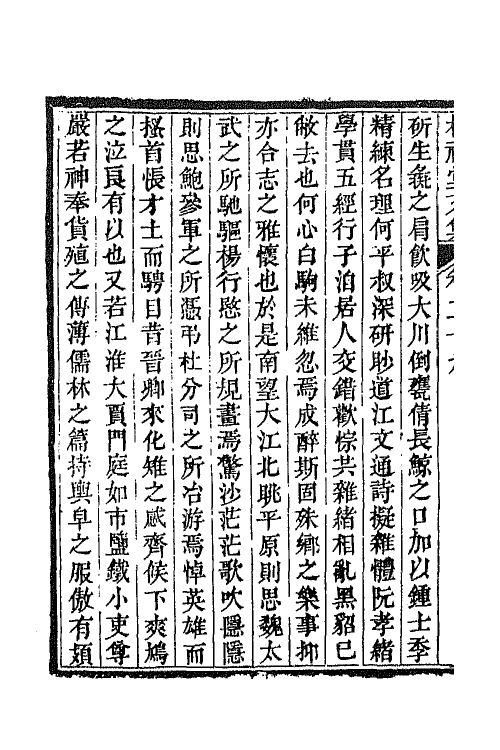 斫生彘之肩飲吸大川倒甕倩長鯨之口加以鍾士季
精練名理何平叔深硏眇道江文通詩擬雜體阮孝緒
學貫五經行子泊居人交錯歡悰共雜緒相亂黑貂已
敝去也何心白駒未維忽焉成醉斯固殊鄉之樂事抑
亦合志之雅懷也於是南望大江北眺平原則思魏太
武之所馳驅楊行愍之所規畫焉驚沙茫茫歌吹隱隱
則思鮑參軍之所憑弔杜分司之所冶游焉悼英雄而
搔首悵才士而騁目昔晉卿來化雉之感齊侯下爽鳩
之泣良有以也又若江淮大賈門庭如市鹽鐵小吏尊
嚴若神奉貨殖之傳薄儒林之篇持輿皁之服傲有頍